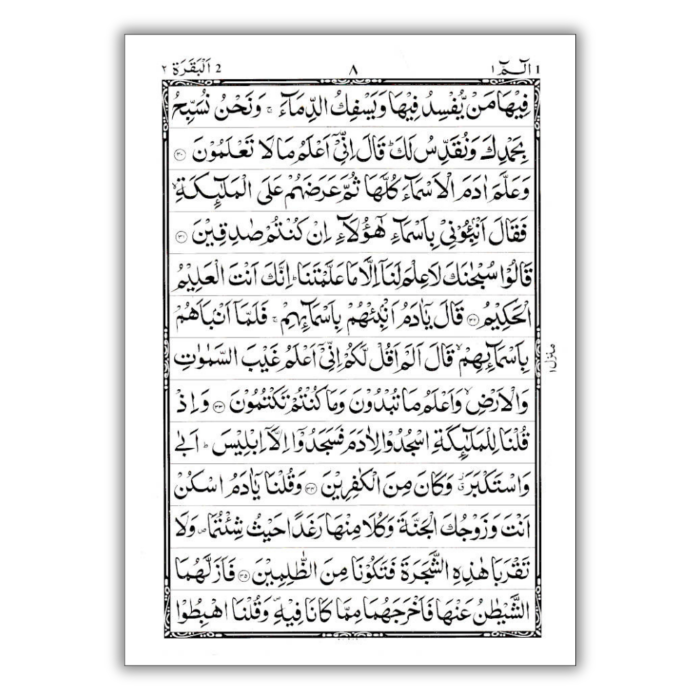 ١ الٓمّٓ 1 ٨ 2 اَلْبَقَرَة ٢
فِيْهَا مَنْ يُّفْسِدُ فِيْهَا وَيَسْفِكُ الدِّمَآءَ ۚ وَنَحْنُ نُسَبِّحُ
بِحَمْدِكَ وَنُقَدِّسُ لَكَ ؕ قَالَ اِنِّيْۤ اَعْلَمُ مَا لَا تَعْلَمُوْنَ ﴿۳۰﴾
وَعَلَّمَ اٰدَمَ الْاَسْمَآءَ كُلَّهَا ثُمَّ عَرَضَهُمْ عَلَى الْمَلٰٓئِكَةِ ۙ
فَقَالَ اَنْۢبِـُٔوْنِيْ بِاَسْمَآءِ هٰٓؤُلَآءِ اِنْ كُنْتُمْ صٰدِقِيْنَ ﴿۳۱﴾
قَالُوْا سُبْحٰنَكَ لَا عِلْمَ لَنَاۤ اِلَّا مَا عَلَّمْتَنَا ؕ اِنَّكَ اَنْتَ الْعَلِيْمُ
الْحَكِيْمُ ﴿۳۲﴾ قَالَ يٰۤاٰدَمُ اَنْۢبِئْهُمْ بِاَسْمَآئِهِمْ ۚ فَلَمَّاۤ اَنْۢبَاَهُمْ
بِاَسْمَآئِهِمْ ۙ قَالَ اَلَمْ اَقُلْ لَّكُمْ اِنِّيْۤ اَعْلَمُ غَيْبَ السَّمٰوٰتِ
وَالْاَرْضِ ۙ وَاَعْلَمُ مَا تُبْدُوْنَ وَمَا كُنْتُمْ تَكْتُمُوْنَ ﴿۳۳﴾ وَاِذْ
قُلْنَا لِلْمَلٰٓئِكَةِ اسْجُدُوْا لِاٰدَمَ فَسَجَدُوْۤا اِلَّاۤ اِبْلِيْسَ ؕ اَبٰى
وَاسْتَكْبَرَ ۗ وَكَانَ مِنَ الْكٰفِرِيْنَ ﴿۳۴﴾ وَقُلْنَا يٰۤاٰدَمُ اسْكُنْ
اَنْتَ وَزَوْجُكَ الْجَنَّةَ وَكُلَا مِنْهَا رَغَدًا حَيْثُ شِئْتُمَا ۪ وَلَا
تَقْرَبَا هٰذِهِ الشَّجَرَةَ فَتَكُوْنَا مِنَ الظّٰلِمِيْنَ ﴿۳۵﴾ فَاَزَلَّهُمَا
الشَّيْطٰنُ عَنْهَا فَاَخْرَجَهُمَا مِمَّا كَانَا فِيْهِ ۪ وَقُلْنَا اهْبِطُوْا
منزل ١